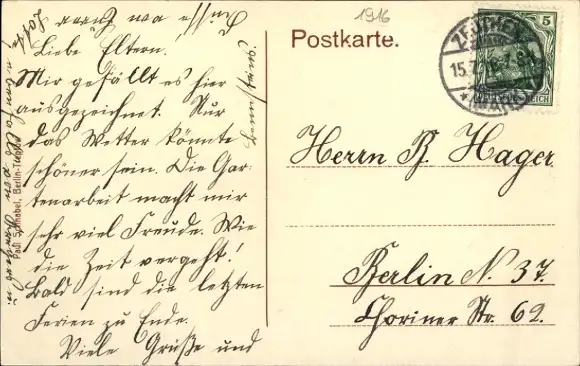 1916
Postkarte.
5
ZEUTHEN
15.7.
* (MARK)
Liebe Eltern.
Mir gefällt es hier
ausgezeichnet. Nur
das Wetter könnte
schöner sein. Die Gar-
tenarbeit macht mir
sehr viel Freude. Wie
die Zeit vergeht!
Bald sind die letzten
Ferien zu Ende.
Viele Grüße und
Küsse von Eurer
Lotte
Herrn B. Hager
Berlin N. 37.
Choriner Str. 62.
Paul Schnabel, Berlin-